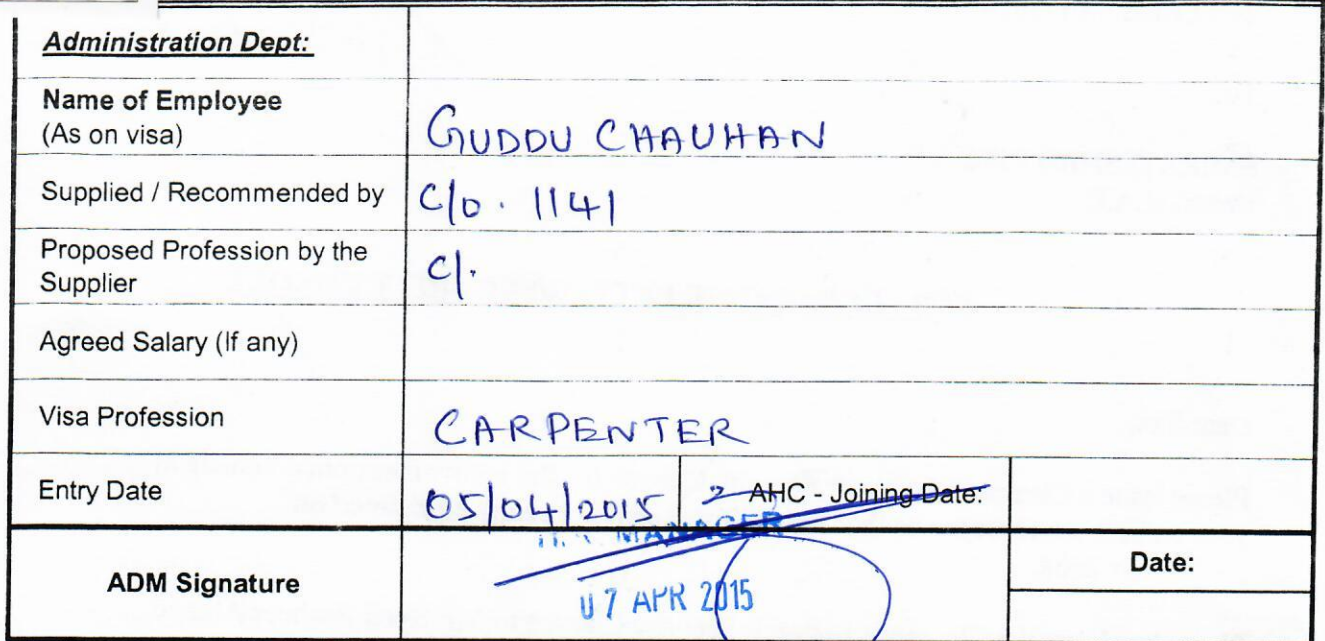 Administration Dept:
Name of Employee
(As on visa)
GUDDU CHAUHAN
Supplied / Recommended by
C/o. 1141
Proposed Profession by the
Supplier
C/.
Agreed Salary (If any)
Visa Profession
CARPENTER
Entry Date
05/04/2015
AHC - Joining Date:
MANAGER
ADM Signature
07 APR 2015
Date: